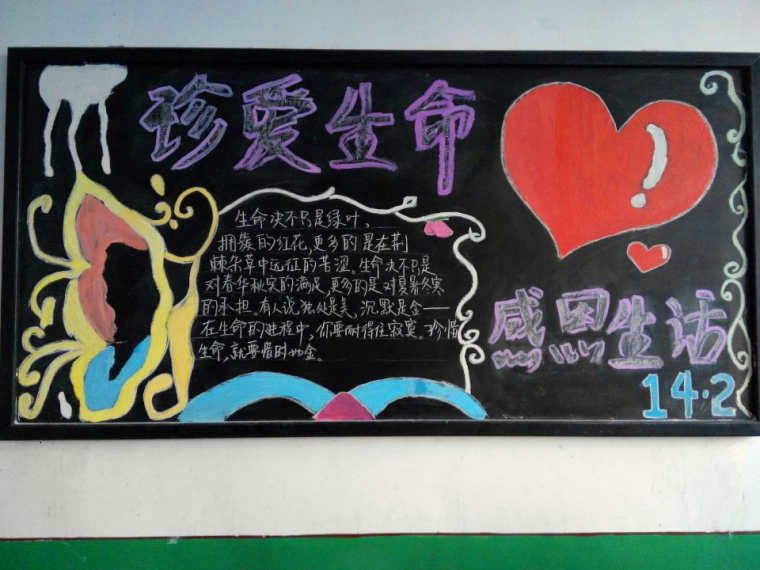 珍爱生命
生命决不只是绿叶、
拥簇的红花,更多的是在荆
棘杂草中远征的苦涩。生命决不只是
对春华秋实的满足,更多的是对夏暑冬寒
的承担。有人说,独处是美,沉默是金——
在生命的进程中,你要耐得住寂寞。珍惜
生命,就要惜时如金。
感恩生活
14·2